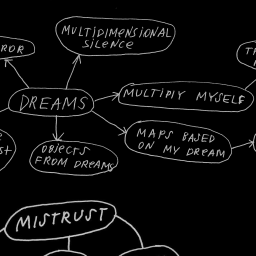 ROR
MULTIDIMENSIONAL
SILENCE
DREAMS
MULTIPLY MYSELF
OBJECTS
FROM DREAMS
MAPS BASED
ON MY DREAM
MISTRUST